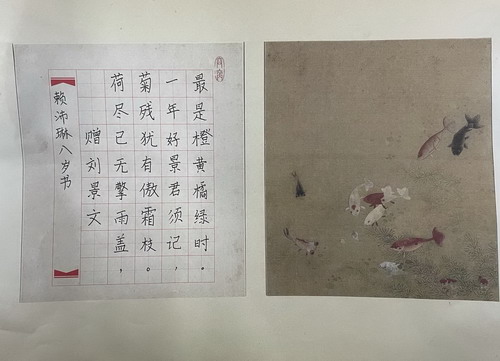 赠刘景文
荷尽已无擎雨盖，
菊残犹有傲霜枝。
一年好景君须记，
最是橙黄橘绿时。
赖沛琳八岁书